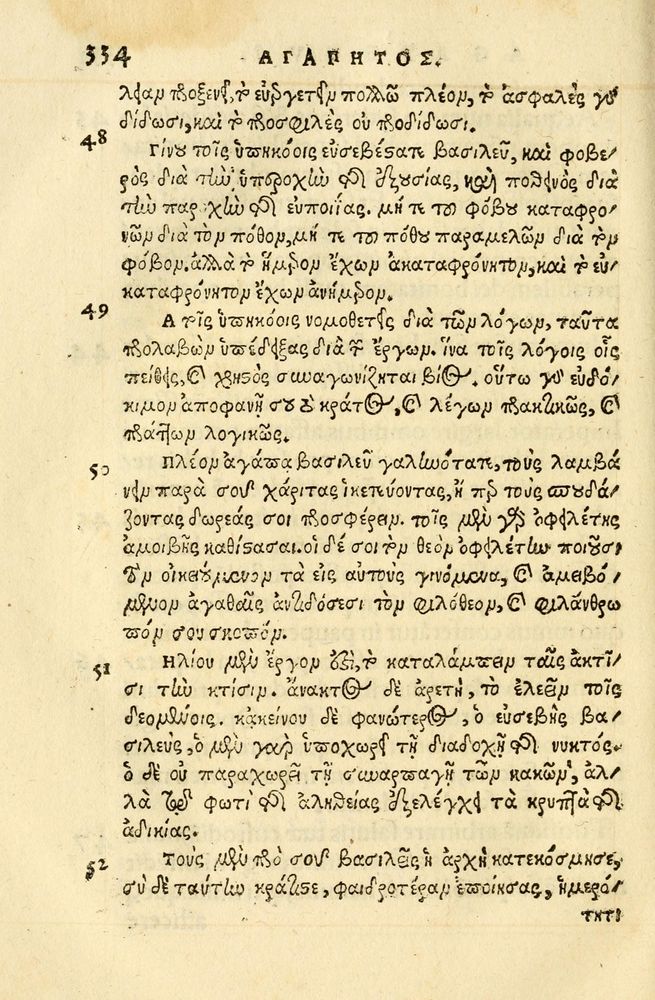 334 ΑΓΑΠΗΤΟΣ.
λείαν προξενεῖ, τὸ εὐεργετεῖν πολλῷ πλέον, τὸ ἀσφαλὲς γὰρ
δίδωσι, καὶ τὸ προσφιλὲς οὐ προδίδωσι.
48 Γίνου τοῖς ὑπηκόοις εὐσεβέστατε βασιλεῦ, καὶ φοβε/
ρὸς διὰ τὴν ὑπεροχὴν τῆς ἐξουσίας, καὶ ποθεινὸς διὰ
τὴν παροχὴν τῆς εὐποιΐας. μήτε τοῦ φόβου καταφρο/
νῶν διὰ τὸν πόθον, μήτε τοῦ πόθου παραμελῶν διὰ τὸν
φόβον. ἀλλὰ τὸ ἥμερον ἔχων ἀκαταφρόνητον, καὶ τὸ εὐ/
καταφρόνητον ἔχων ἀνήμερον.
49 Α τοῖς ὑπηκόοις νομοθετεῖς διὰ τῶν λόγων, ταῦτα
προλαβὼν ὑπέδειξας διὰ τῶν ἔργων. ἵνα τοῖς λόγοις οἷς
πείθεις, καὶ χρηστὸς συναγωνίζηται βίος. οὕτω γὰρ εὐδό/
κιμον ἀποφανῇ σου τὸ κράτος, καὶ λέγων πρακτικῶς, καὶ
πράττων λογικῶς.
50 Πλέον ἀγάπα βασιλεῦ γαληνότατε, τοὺς λαμβά
νειν παρὰ σοῦ χάριτας ἱκετεύοντας, ἢ περ τοὺς σπουδά/
ζοντας δωρεάς σοι προσφέρειν. τοῖς μὲν γὰρ ὀφειλέτης
ἀμοιβῆς καθίστασαι. οἱ δέ σοι τὸν θεὸν ὀφειλέτην ποιοῦσι
τὸν οἰκειούμενον τὰ εἰς αὐτοὺς γινόμενα, καὶ ἀμειβό/
μενον ἀγαθαῖς ἀντιδόσεσι τὸν φιλόθεον, καὶ φιλάνθρω
πόν σου σκοπόν.
51 Ηλίου μὲν ἔργον ἐστὶ, τὸ καταλάμπειν ταῖς ἀκτῖ/
σι τὴν κτίσιν. ἄνακτος δὲ ἀρετὴ, τὸ ἐλεεῖν τοῖς
δεομένοις. κἀκείνου δὲ φανώτερος, ὁ εὐσεβὴς βα/
σιλεύς, ὁ μὲν γὰρ ὑποχωρεῖ τῇ διαδοχῇ τῆς νυκτός.
ὁ δὲ οὐ παραχωρεῖ τῇ συναρπαγῇ τῶν κακῶν, ἀλ/
λὰ τῷ φωτὶ τῆς ἀληθείας ἐξελέγχει τὰ κρυπτὰ τῆς
ἀδικίας.
52 Τοὺς μὲν πρό σοῦ βασιλεῖς ἡ ἀρχὴ κατεκόσμησε,
σὺ δὲ ταύτην κράτιστε, φαιδροτέραν ἐποίησας, ἡμερό/
τητι